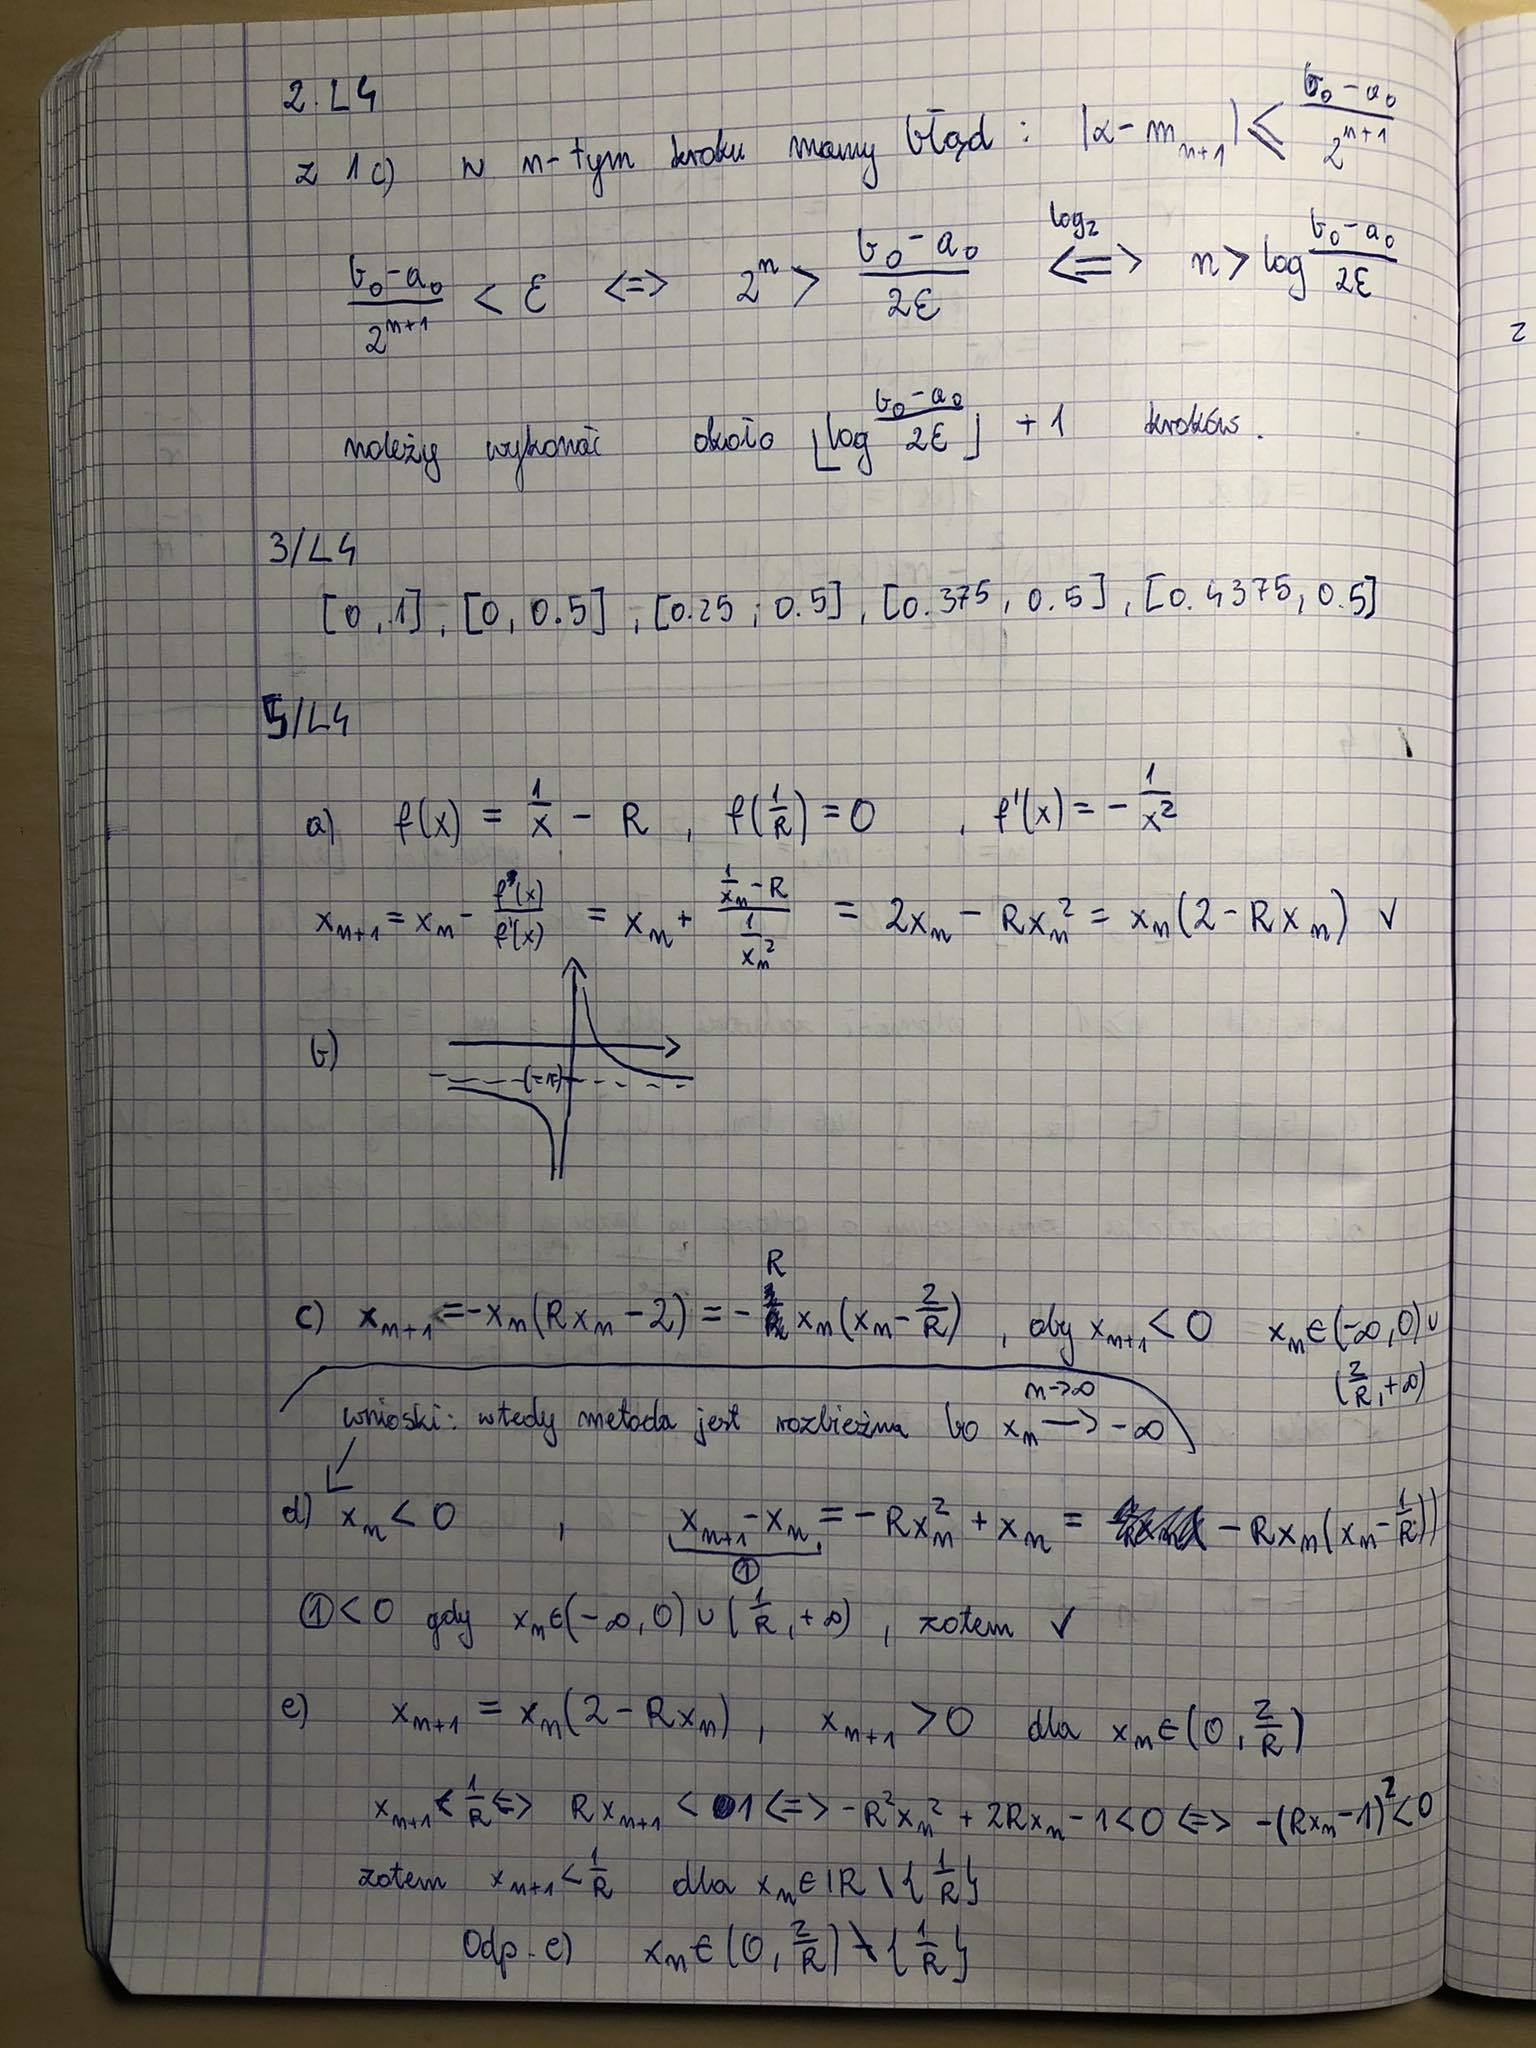 2.L4
z 1c) w n-tym kroku mamy błąd : |α - m_{n+1}| ≤ \frac{b_0 - a_0}{2^{n+1}}
\frac{b_0 - a_0}{2^{n+1}} < ε <=> 2^n > \frac{b_0 - a_0}{2ε} \overset{log_2}{<=>} n > log \frac{b_0 - a_0}{2ε}
należy wykonać około ⌊log \frac{b_0 - a_0}{2ε}⌋ + 1 kroków.
3/L4
[0, 1], [0, 0.5], [0.25, 0.5], [0.375, 0.5], [0.4375, 0.5]
5/L4
a) f(x) = \frac{1}{x} - R , f(\frac{1}{R}) = 0 , f'(x) = -\frac{1}{x^2}
x_{n+1} = x_n - \frac{f(x)}{f'(x)} = x_n + \frac{\frac{1}{x_n} - R}{\frac{1}{x_n^2}} = 2x_n - Rx_n^2 = x_n(2 - Rx_n) ✓
b)
c) x_{n+1} = -x_n(Rx_n - 2) = -R x_n(x_n - \frac{2}{R}) , aby x_{n+1} < 0 x_n ∈ (-∞, 0) ∪
(\frac{2}{R}, +∞)
wnioski: wtedy metoda jest rozbieżna bo x_n \overset{n→∞}{→} -∞
d) x_n < 0 , x_{n+1} - x_n = -Rx_n^2 + x_n = -Rx_n(x_n - \frac{1}{R}))
①
① < 0 gdy x_n ∈ (-∞, 0) ∪ (\frac{1}{R}, +∞) , zatem ✓
e) x_{n+1} = x_n(2 - Rx_n) , x_{n+1} > 0 dla x_n ∈ (0, \frac{2}{R})
x_{n+1} < \frac{1}{R} <=> Rx_{n+1} < 1 <=> -R^2x_n^2 + 2Rx_n - 1 < 0 <=> -(Rx_n - 1)^2 < 0
zatem x_{n+1} < \frac{1}{R} dla x_n ∈ ℝ \ {\frac{1}{R}}
Odp. e) x_n ∈ (0, \frac{2}{R}) \ {\frac{1}{R}}
z